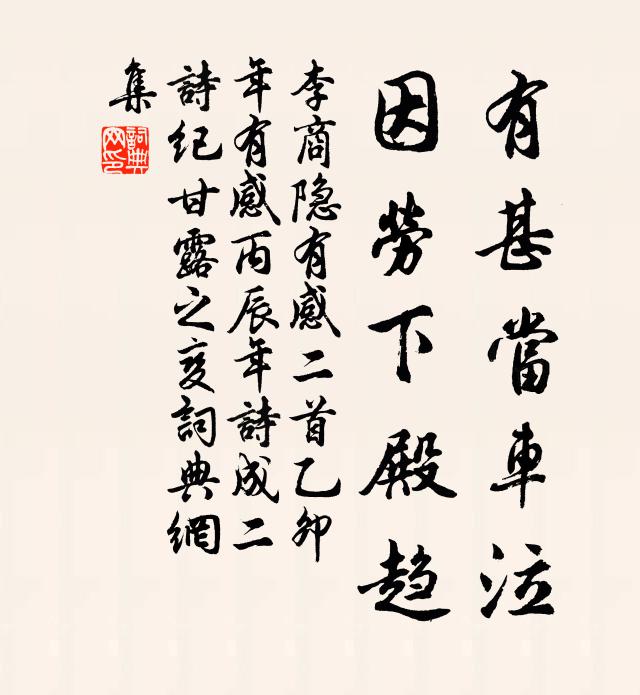 有甚當車泣
因勞下殿趋
李商隐有感二首乙卯
年有感丙辰年詩成二
詩纪甘露之变詞典網
集
詞典网印